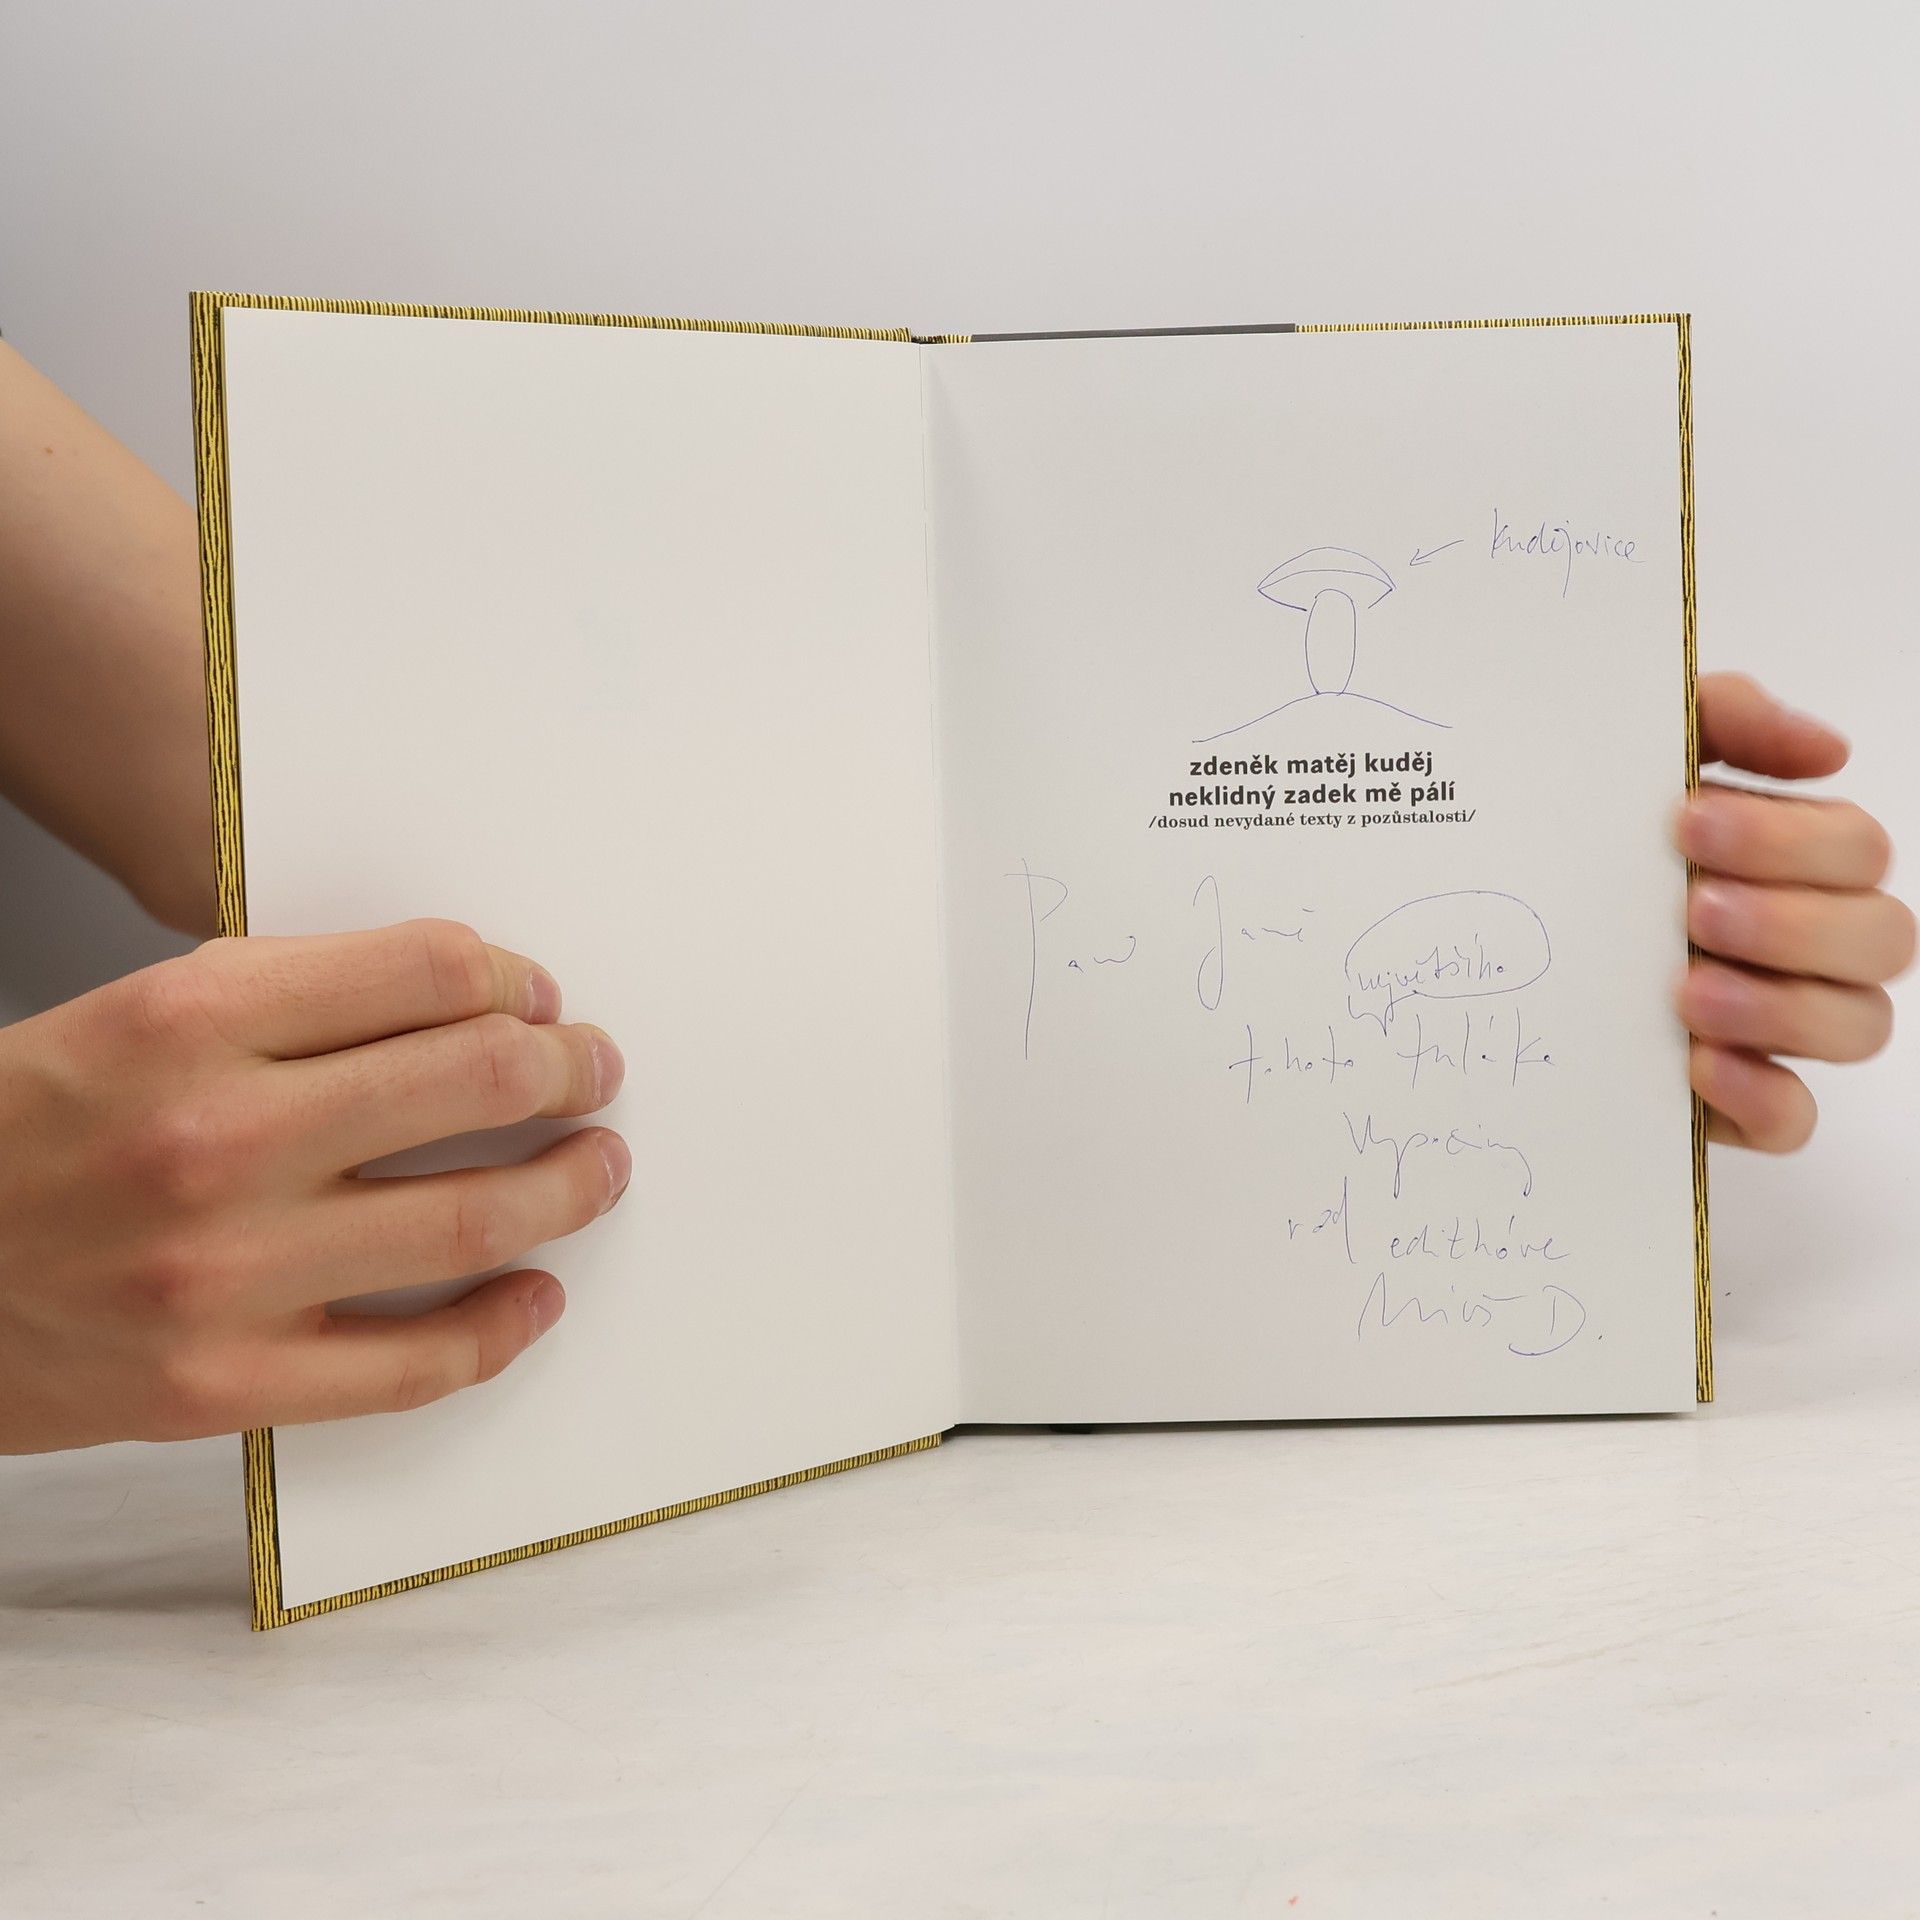 Kudějovice
zdeněk matěj kuděj
neklidný zadek mě pálí
/dosud nevydané texty z pozůstalosti/
největšího
tohoto tuláka
Vypociny
rád
D.